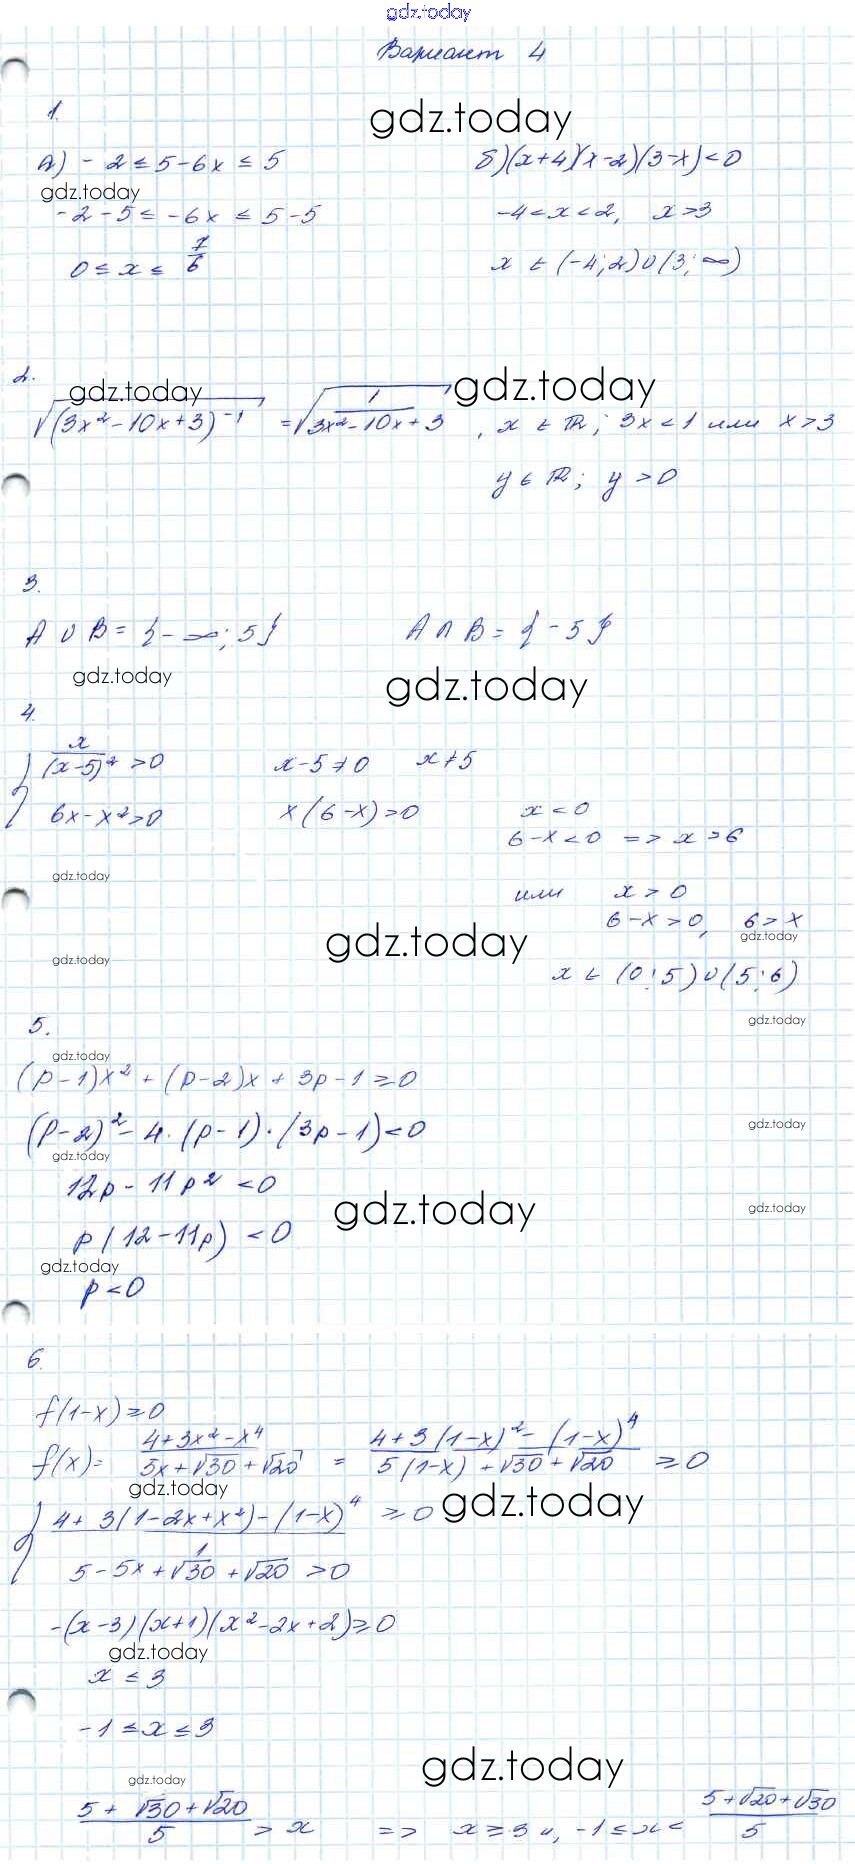 gdz.today
Вариант 4
1.
gdz.today
а) -2 ≤ 5-6x ≤ 5
б) (x+4)(x-2)(3-x)<0
gdz.today
-2-5 ≤ -6x ≤ 5-5
-4<x<2, x>3
0 ≤ x ≤ 7/6
x ∈ (-4; 2)∪(3; ∞)
2.
gdz.today
gdz.today
√(3x²-10x+3)⁻¹ = √1/(3x²-10x+3), x ∈ ℝ; 3x<1 или x>3
y ∈ ℝ; y>0
3.
A ∪ B = {-∞; 5}
A ∩ B = {-5}
gdz.today
gdz.today
4.
{ x/(x-5)² >0
x-5≠0 x≠5
6x-x²>0
x(6-x)>0
x<0
6-x<0 => x>6
gdz.today
или x>0
6-x>0, 6>x
gdz.today
gdz.today
gdz.today
x ∈ (0;5)∪(5;6)
5.
gdz.today
gdz.today
(p-1)x²+(p-2)x+3p-1≥0
(p-2)²-4·(p-1)·(3p-1)<0
gdz.today
gdz.today
12p-11p²<0
gdz.today
gdz.today
p(12-11p)<0
gdz.today
p<0
6.
f(1-x)≥0
f(x)= (4+3x²-x⁴)/(5x+√30+√20) = (4+3(1-x)²-(1-x)⁴)/(5(1-x)+√30+√20) ≥0
gdz.today
gdz.today
{ (4+3(1-2x+x²)-(1-x)⁴)/1 ≥0
5-5x+√30+√20 >0
-(x-3)(x+1)(x²-2x+2)≥0
gdz.today
x ≤ 3
-1 ≤ x ≤ 3
gdz.today
gdz.today
(5+√30+√20)/5 > x => x≥3 и, -1≤x< (5+√20+√30)/5